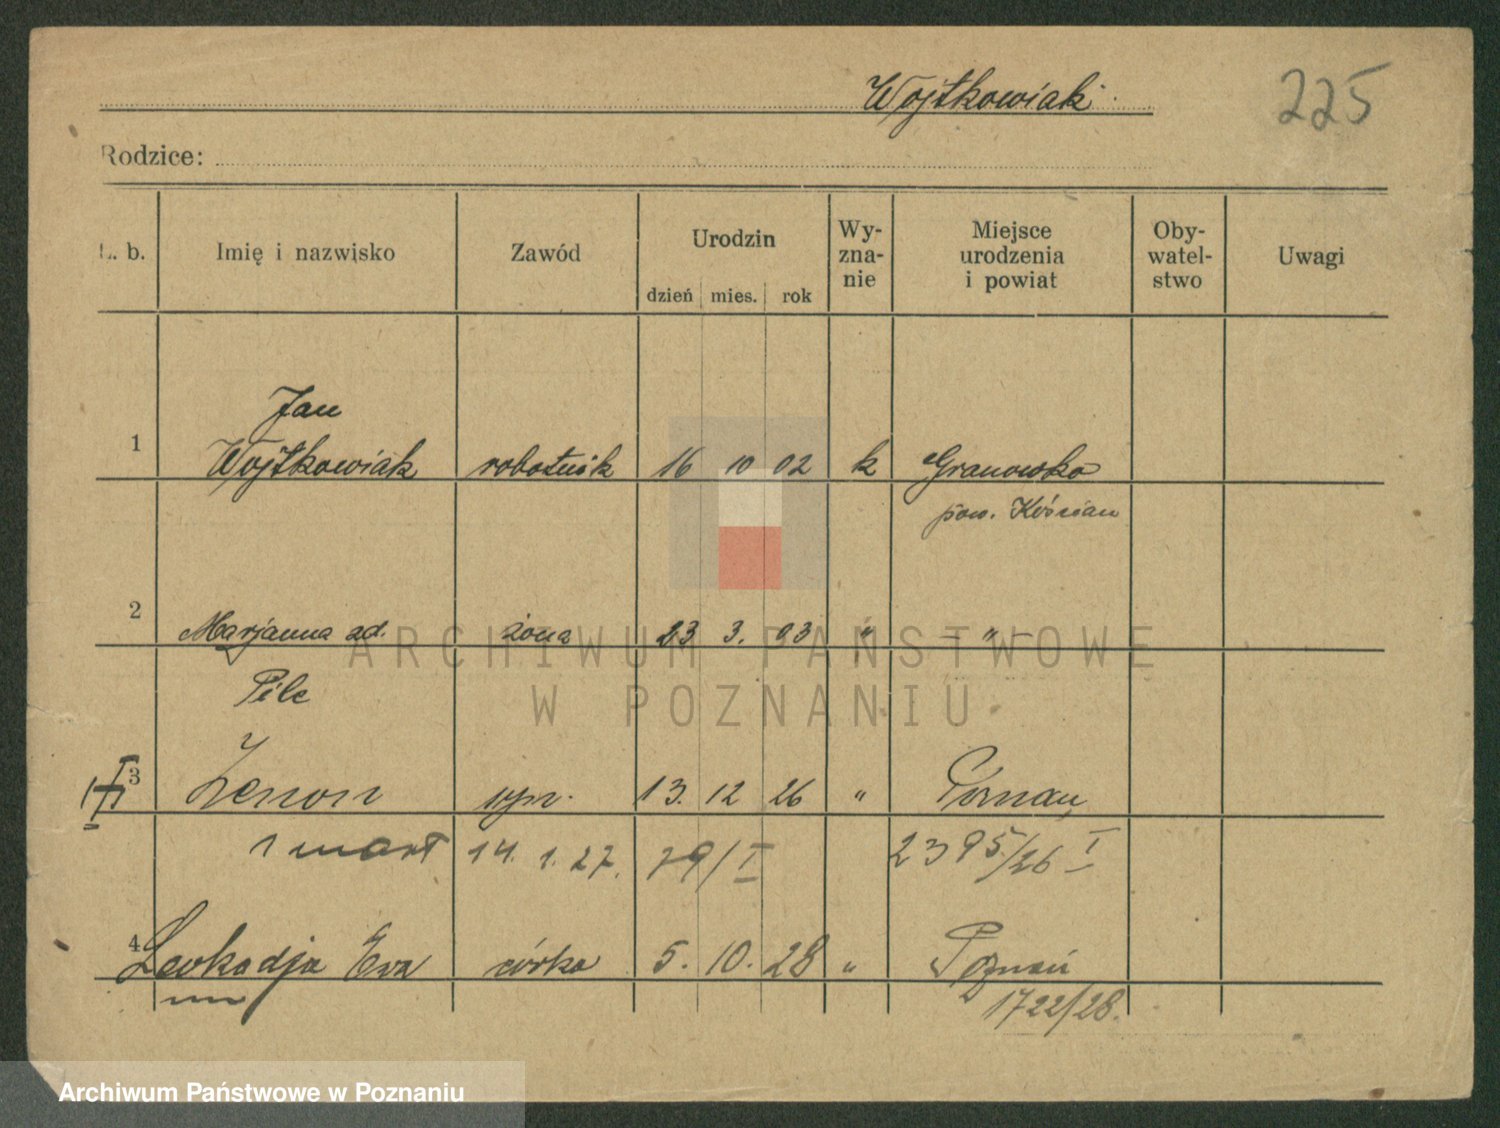 Wojtkowiak
225
Rodzice:
L. b. Imię i nazwisko Zawód Urodzin dzień mies. rok Wy-zna-nie Miejsce urodzenia i powiat Oby-watel-stwo Uwagi
Jan
1 Wojtkowiak robotnik 16 10 02 k Granowsko
pow. Kościan
2 Marjanna zd. żona 23 3. 03 " — " —
Pilc
3 Zenon syn. 13. 12 26 " Poznań
zmarł 14. 1. 27. 79/I 2395/26 I
4 Leokadja Ewa córka 5. 10. 28 " Poznań
1722/28.
ARCHIWUM PAŃSTWOWE
W POZNANIU
Archiwum Państwowe w Poznaniu